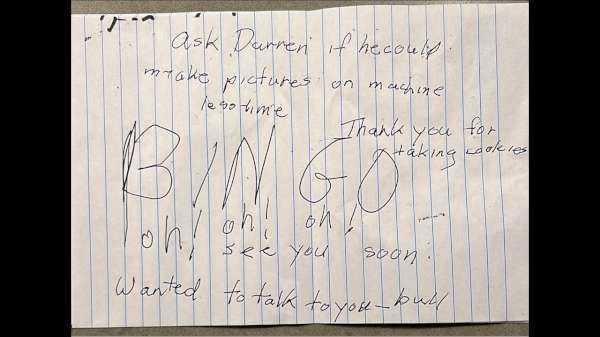 Ask Darren if he could
make pictures on machine
less time
Thank you for
taking cookies
BINGO
oh! oh! oh!
see you soon!
Wanted to talk to you —